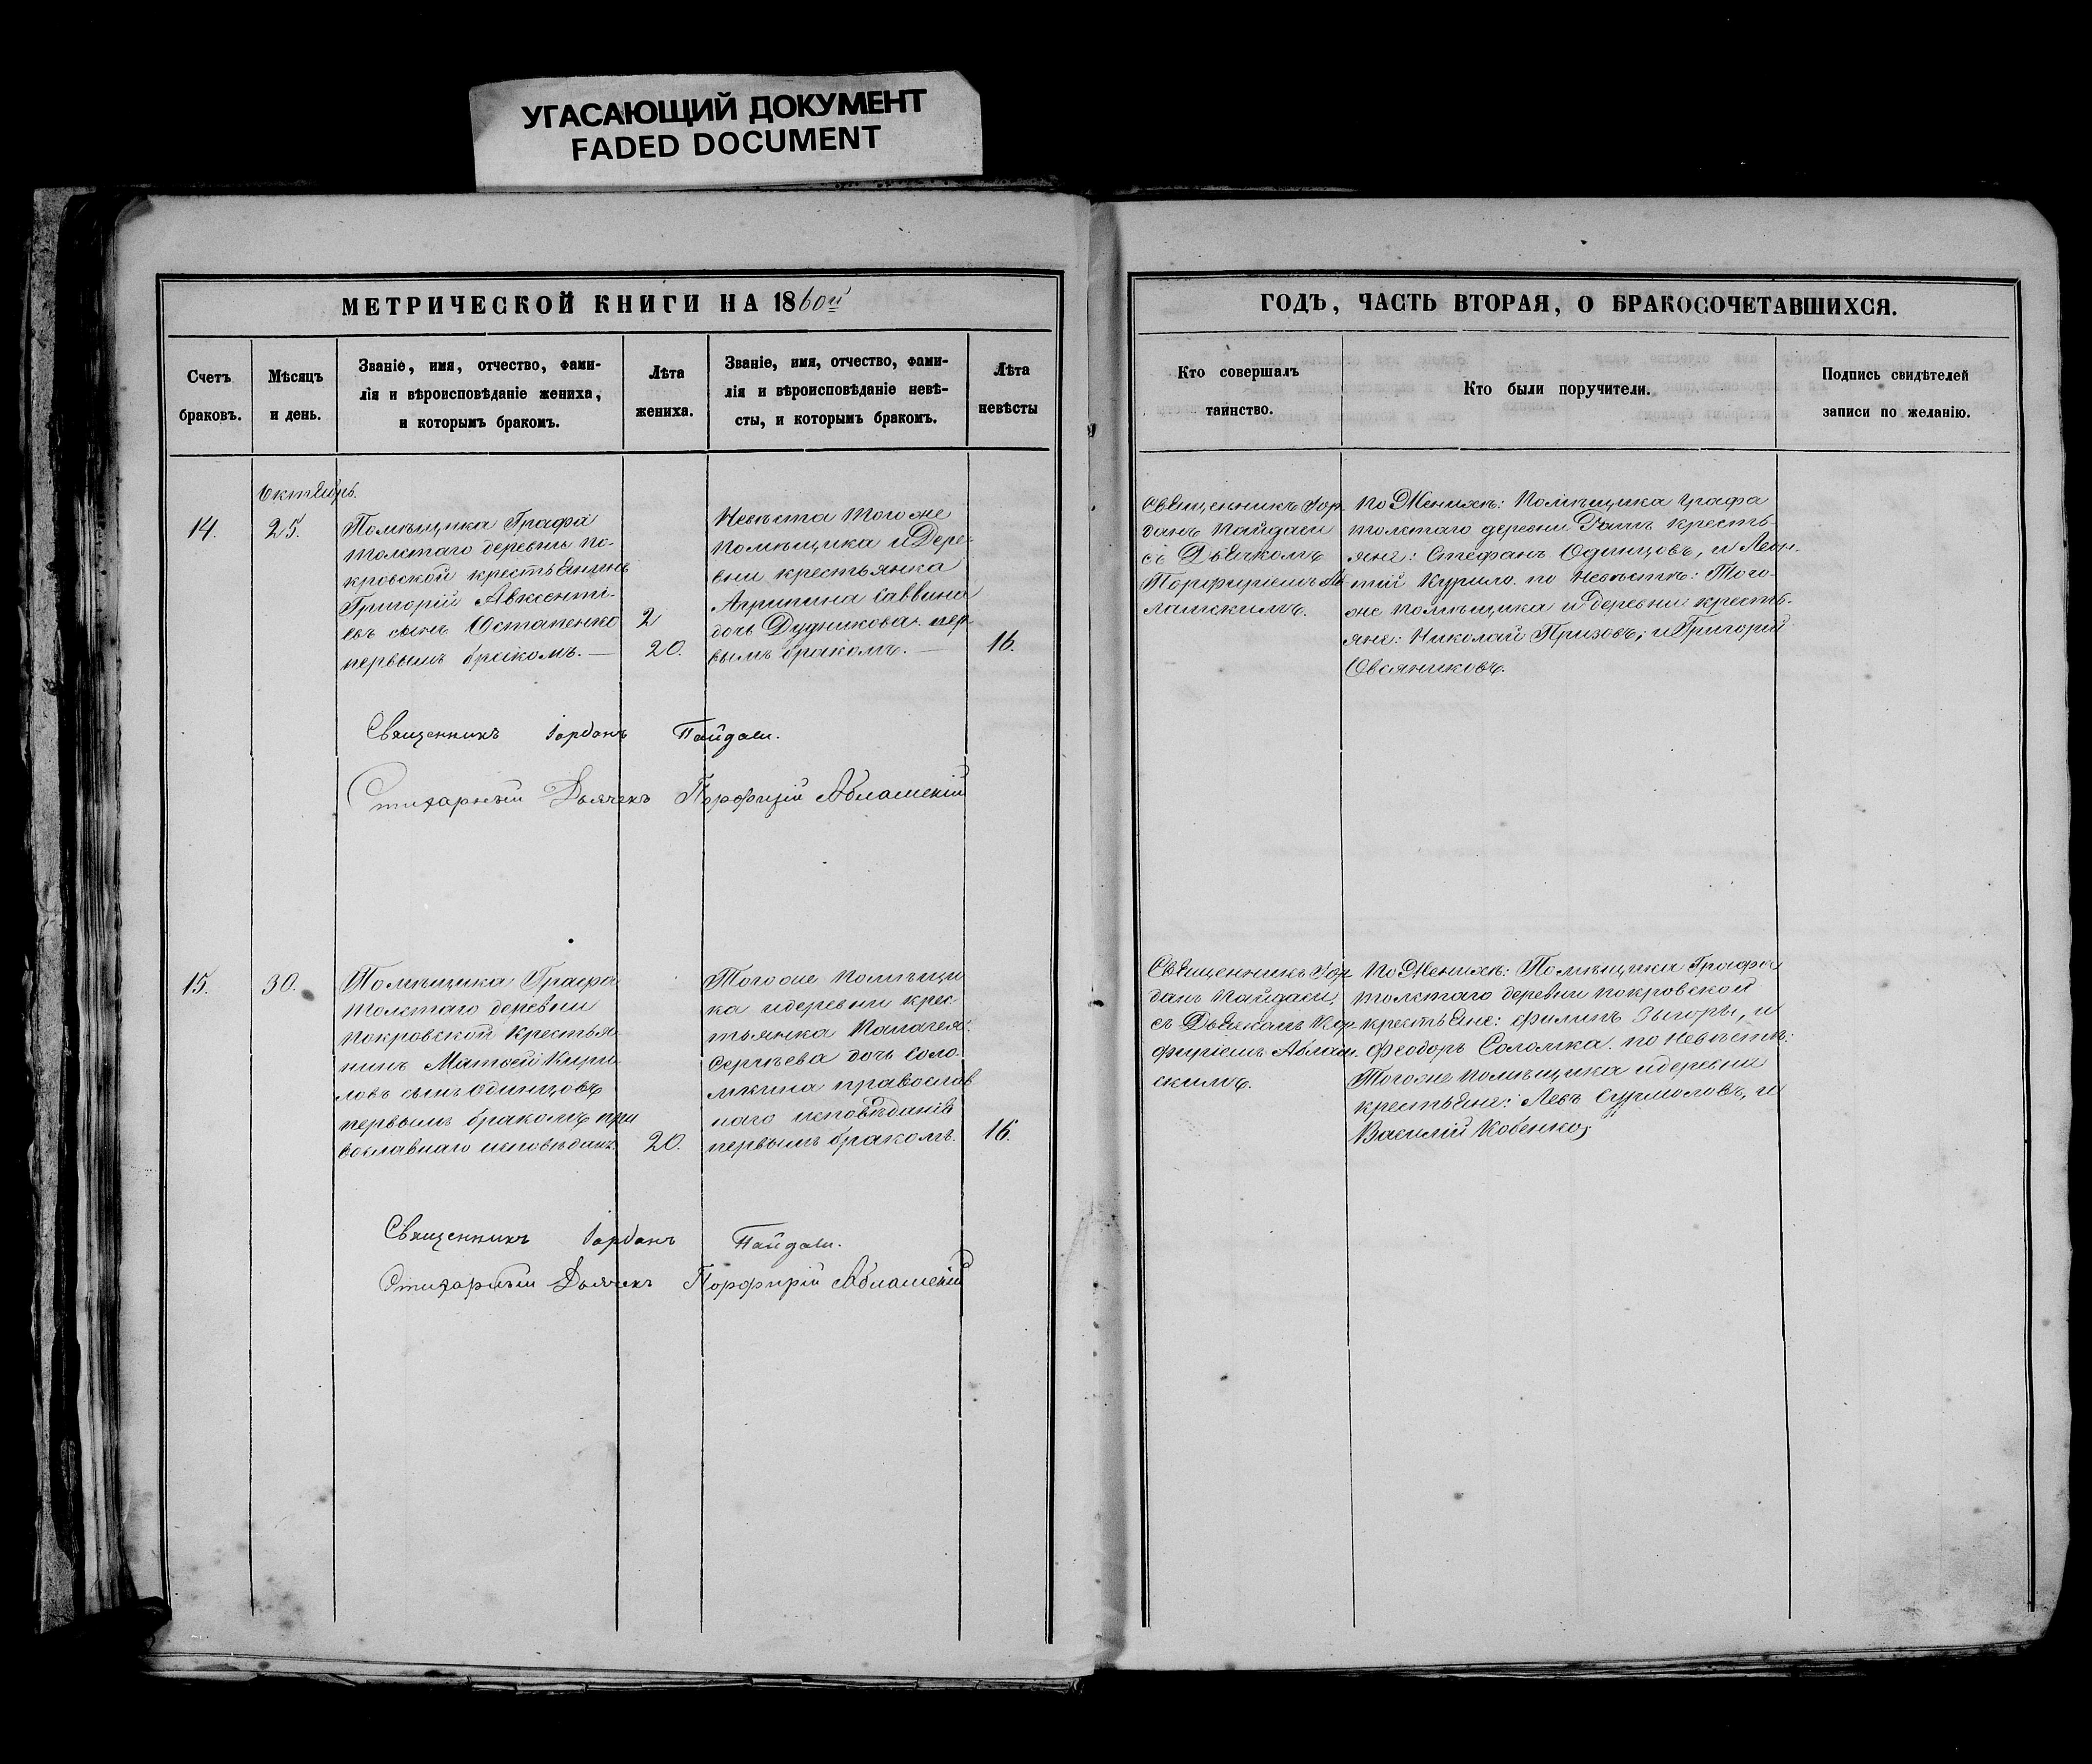 УГАСАЮЩИЙ ДОКУМЕНТ
FADED DOCUMENT
МЕТРИЧЕСКОЙ КНИГИ НА 1860й
Счетъ
браковъ.
Мѣсяцъ
и день.
Званіе, имя, отчество, фами-
лія и вѣроисповѣданіе жениха,
и которымъ бракомъ.
Лѣта
жениха.
Званіе, имя, отчество, фами-
лія и вѣроисповѣданіе невѣ-
сты, и которымъ бракомъ.
Лѣта
невѣсты
Октябрь.
14.
25.
Помѣщика Графа
Толстаго деревни По-
кровской крестьянинъ
Григорій Авксенті-
евъ сынъ Остапенко
первымъ бракомъ. —
2
20.
Невѣста того же
Помѣщика и Дере-
вни крестьянка
Агрипина Саввина
дочь Дудникова. пер-
вымъ бракомъ. —
16.
Священникъ Іорданъ Пайдаши.
Стихарный Дьячекъ Порфирій Абламскій
15.
30.
Помѣщика Графа
Толстаго деревни
Покровской Крестья-
нинъ Матвей Кири-
ловъ сынъ Одинцовъ
первымъ бракомъ пра
вославнаго исповѣдан.
20.
Того же Помѣщи
ка и деревни крес-
тьянка Палагея
Сергѣева дочь Соло-
мкина православ
наго исповѣданія
первымъ бракомъ.
16.
Священникъ Іорданъ Пайдаши.
Стихарный Дьячекъ Порфирій Абламскій
ГОДЪ, ЧАСТЬ ВТОРАЯ, О БРАКОСОЧЕТАВШИХСЯ.
Кто совершалъ
таинство.
Кто были поручители.
Подпись свидѣтелей
записи по желанію.
Священникъ Іор
данъ Пайдаши
съ Дьячкомъ
Порфиріемъ Аб
ламскимъ.
По Женихѣ: Помѣщика Графа
Толстаго деревни крестья-
яне: Стефанъ Одинцовъ, и Леон-
тий Курило. по Невѣстѣ: Того-
же Помѣщика и деревни кресть-
яне: Николай Призовъ, и Григорий
Овсяниковъ.
Священникъ Іор
данъ Пайдаши,
съ Дьячкомъ Пор
фиріемъ Аблам.
скимъ.
По Женихѣ: Помѣщика Графа
Толстаго деревни Покровской
крестьяне: Филипъ Зыгоры, и
Феодоръ Соломка. по Невѣстѣ:
Тогоже Помѣщика и деревни
крестьяне: Левъ Сурмоловъ, и
Василій Кобенко,